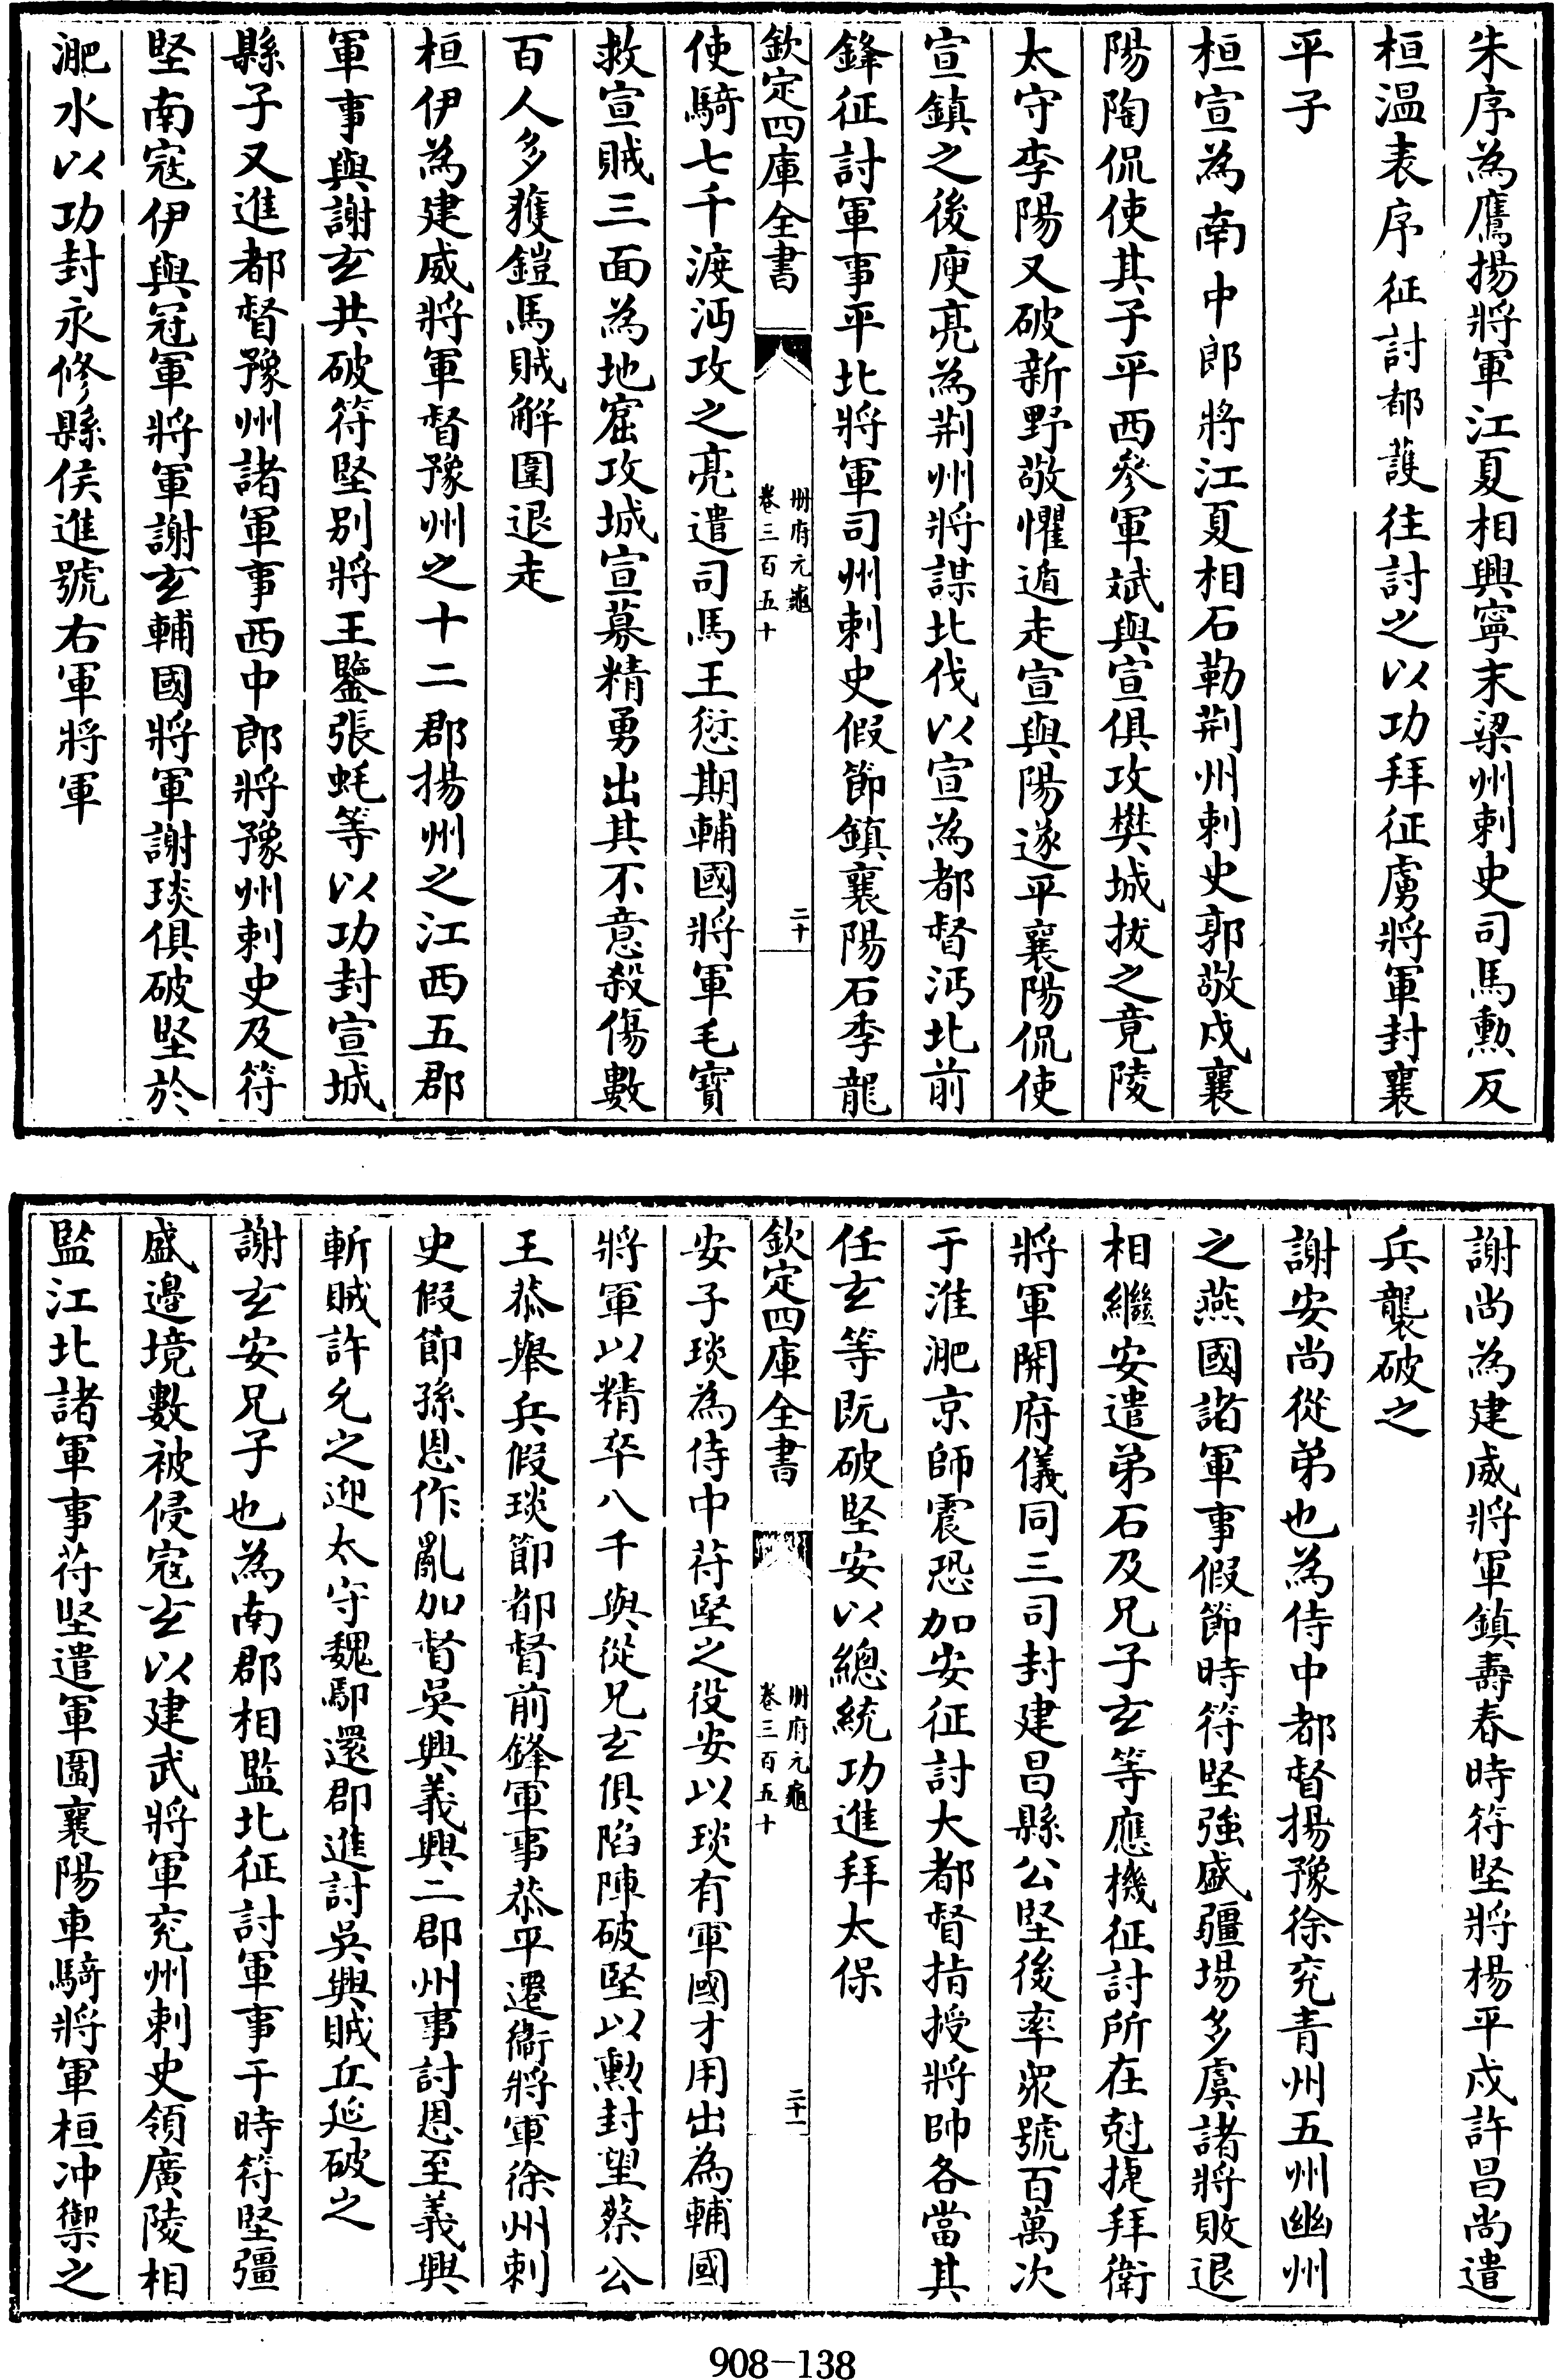 朱序為鷹揚將軍江夏相興寧末梁州刺史司馬勲反
桓温表序征討都護往討之以功拜征虜將軍封襄
平子
桓宣為南中郎將江夏相石勒荆州刺史郭敬戍襄
陽陶侃使其子平西參軍斌與宣俱攻樊城拔之竟陵
太守李陽又破新野敬懼遁走宣與陽遂平襄陽侃使
宣鎮之後庾亮為荆州將謀北伐以宣為都督沔北前
鋒征討軍事平北將軍司州刺史假節鎮襄陽石季龍
欽定四庫全書
册府元龜
卷三百五十
二十
使騎七千渡沔攻之亮遣司馬王愆期輔國將軍毛寶
救宣賊三面為地窟攻城宣募精勇出其不意殺傷數
百人多獲鎧馬賊解圍退走
桓伊為建威將軍督豫州之十二郡揚州之江西五郡
軍事與謝玄共破符堅别將王鑒張蚝等以功封宣城
縣子又進都督豫州諸軍事西中郎將豫州刺史及符
堅南寇伊與冠軍將軍謝玄輔國將軍謝琰俱破堅於
淝水以功封永修縣侯進號右軍將軍
謝尚為建威將軍鎮壽春時符堅將楊平戍許昌尚遣
兵襲破之
謝安尚從弟也為侍中都督揚豫徐兖青州五州幽州
之燕國諸軍事假節時符堅強盛疆場多虞諸將敗退
相繼安遣弟石及兄子玄等應機征討所在尅捷拜衛
將軍開府儀同三司封建昌縣公堅後率衆號百萬次
于淮淝京師震恐加安征討大都督指授將帥各當其
任玄等既破堅安以總統功進拜太保
欽定四庫全書
册府元龜
卷三百五十
二十一
安子琰為侍中苻堅之役安以琰有軍國才用出為輔國
將軍以精卒八千與從兄玄俱陷陣破堅以勲封望蔡公
王恭舉兵假琰節都督前鋒軍事恭平遷衞將軍徐州刺
史假節孫恩作亂加督吳興義興二郡州事討恩至義興
斬賊許允之迎太守魏鄢還郡進討吳興賊丘尫破之
謝玄安兄子也為南郡相監北征討軍事于時符堅彊
盛邊境數被侵寇玄以建武將軍兖州刺史領廣陵相
監江北諸軍事苻堅遣軍圍襄陽車騎將軍桓冲禦之
908-138